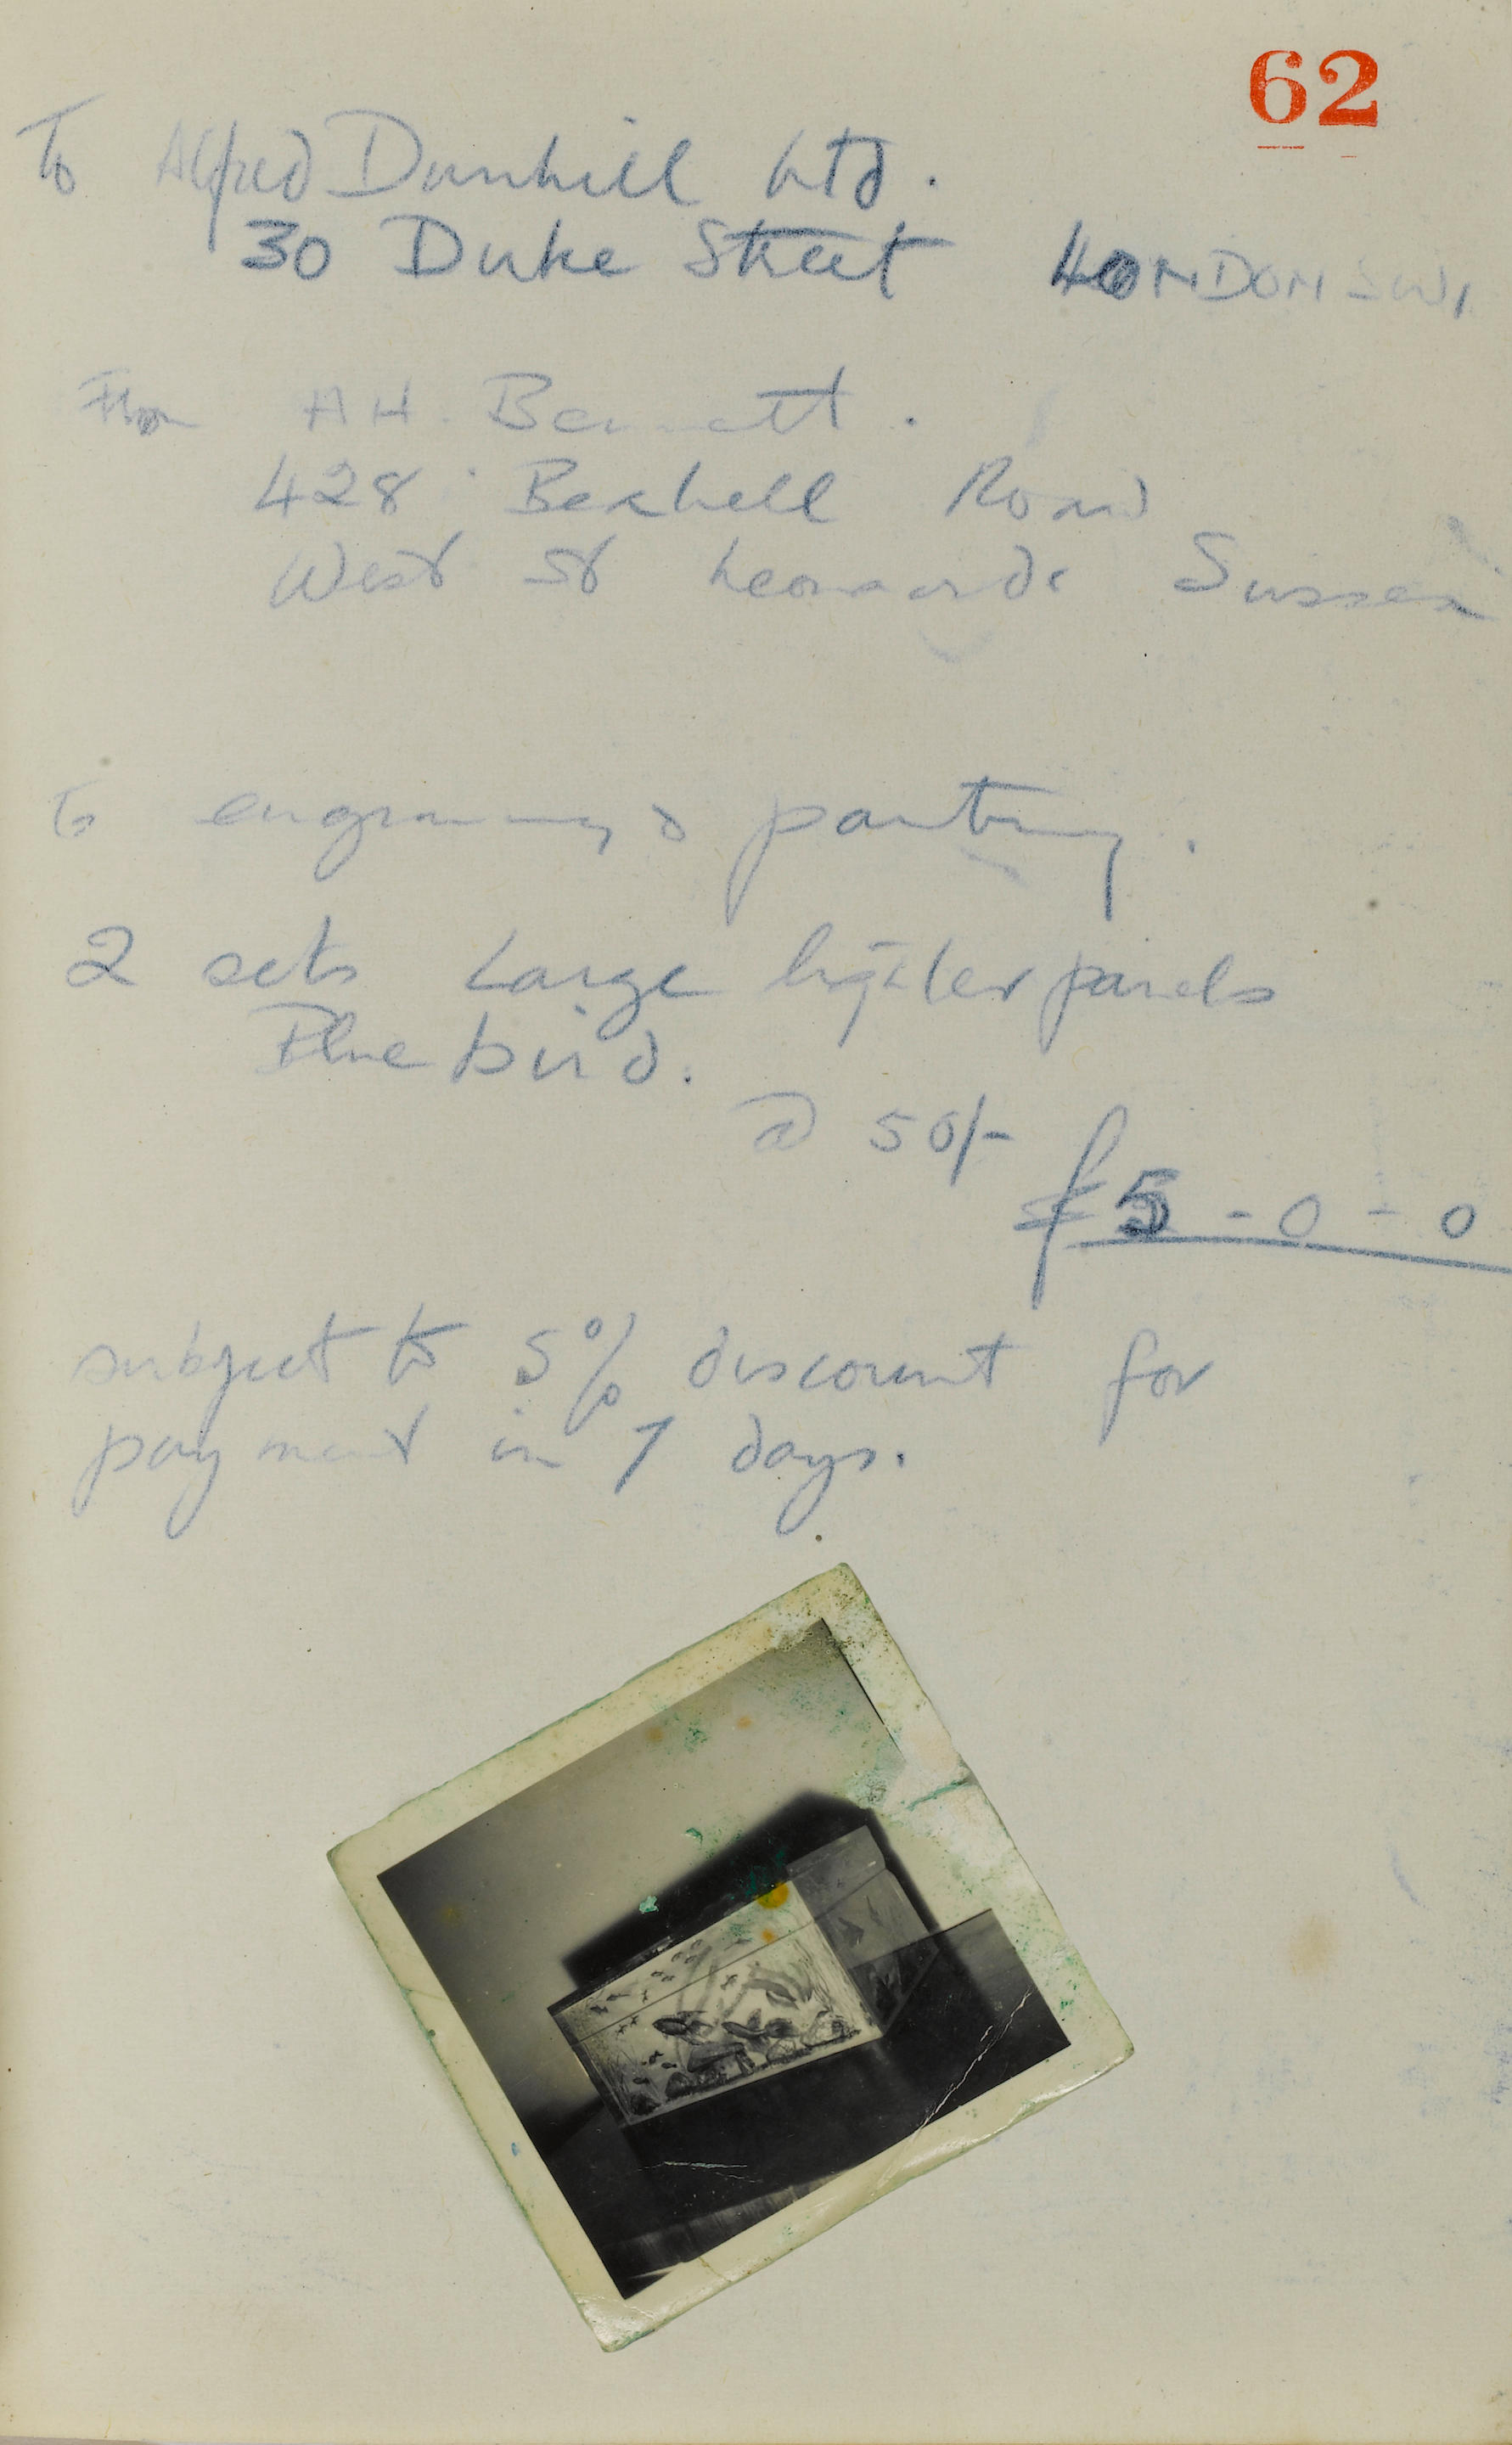 62
To Alfred Dunhill Ltd.
30 Duke Street LONDON SW1
From A H. Bennett.
428 Bexhell Road
West St Leonards Sussex
To engraving & painting.
2 sets Large lighter panels
Blue bird.
@ 50/-
£5 - 0 - 0
subject to 5% discount for
payment in 7 days.